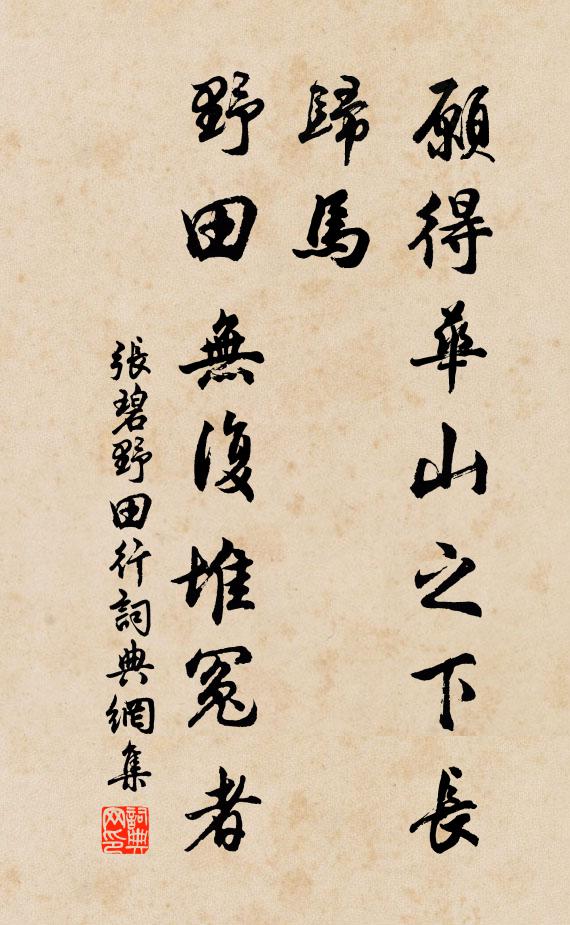 願得華山之下長
歸馬
野田無復堆冤者
張碧野田行詞典網集
詞典
网印